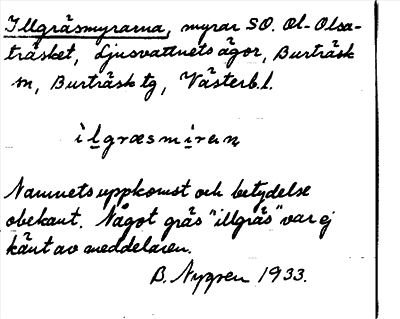 Illgräsmyrarna, myrar SO. Ol-Olsa-
träsket, Ljusvattnets ägor, Burträsk
sn, Burträsk tg, Västerb.l.
ilgræsmiran
Namnets uppkomst och betydelse
obekant. Något gräs "illgräs" var ej
känt av meddelaren.
B. Nygren 1933.